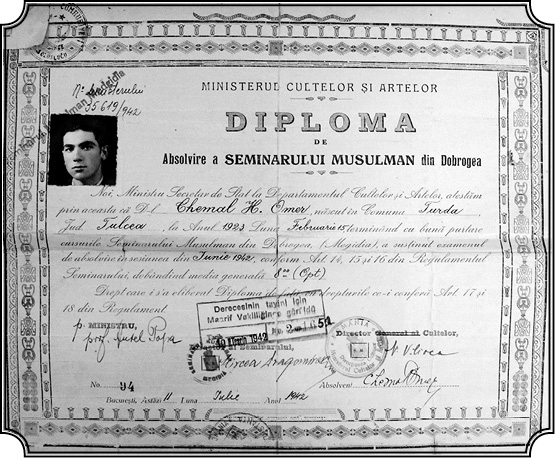 Nº Ministerului
35619/942
MINISTERUL CULTELOR ȘI ARTELOR
DIPLOMA
DE
Absolvire a SEMINARULUI MUSULMAN din Dobrogea
Noi, Ministru Secretar de Stat la Departamentul Cultelor și Artelor, atestăm
prin aceasta că D-l. Chemal H. Omer, născut în Comuna Turda
Jud. Tulcea, la Anul 1923 Luna Februarie 15 terminând cu bună purtare
cursurile Seminarului Musulman din Dobrogea, (Megidia), a susținut examenul
de absolvire în sesiunea din Iunie 1942, conform Art. 14, 15 și 16 din Regulamentul
Seminarului, dobândind media generală 8 (Opt)
Drept care i s'a eliberat Diploma de drepturile ce-i conferă Art. 17 și
18 din Regulament.
Derecesinin tayini için
Maarif Vekilliğince görüldü
1942 No. 2-1651
p. MINISTRU,
prof. Aurel Popa
Seminarului,
Director General al Cultelor,
ROMANIA
No. 94
Absolvent,
București, Astăzi 11 Luna Iulie Anul 1942